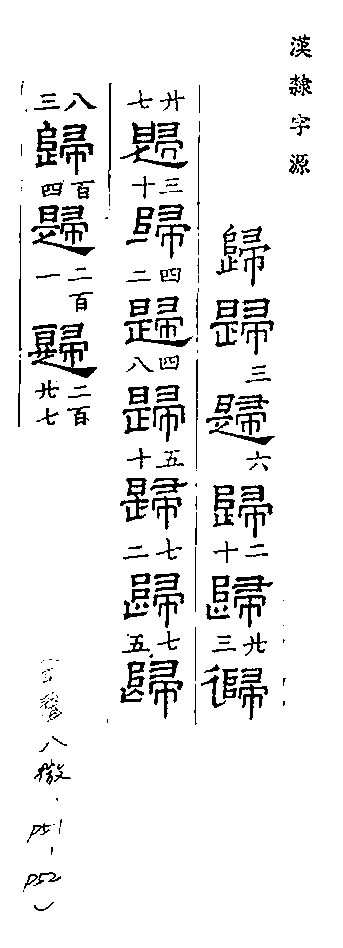 漢隸字源
歸歸三歸六歸二十歸廿三歸
廿七歸三十歸四二歸四八歸五十歸七二歸七五歸
八三歸百四歸二百一歸二百廿七
聲八微. P51-P52)